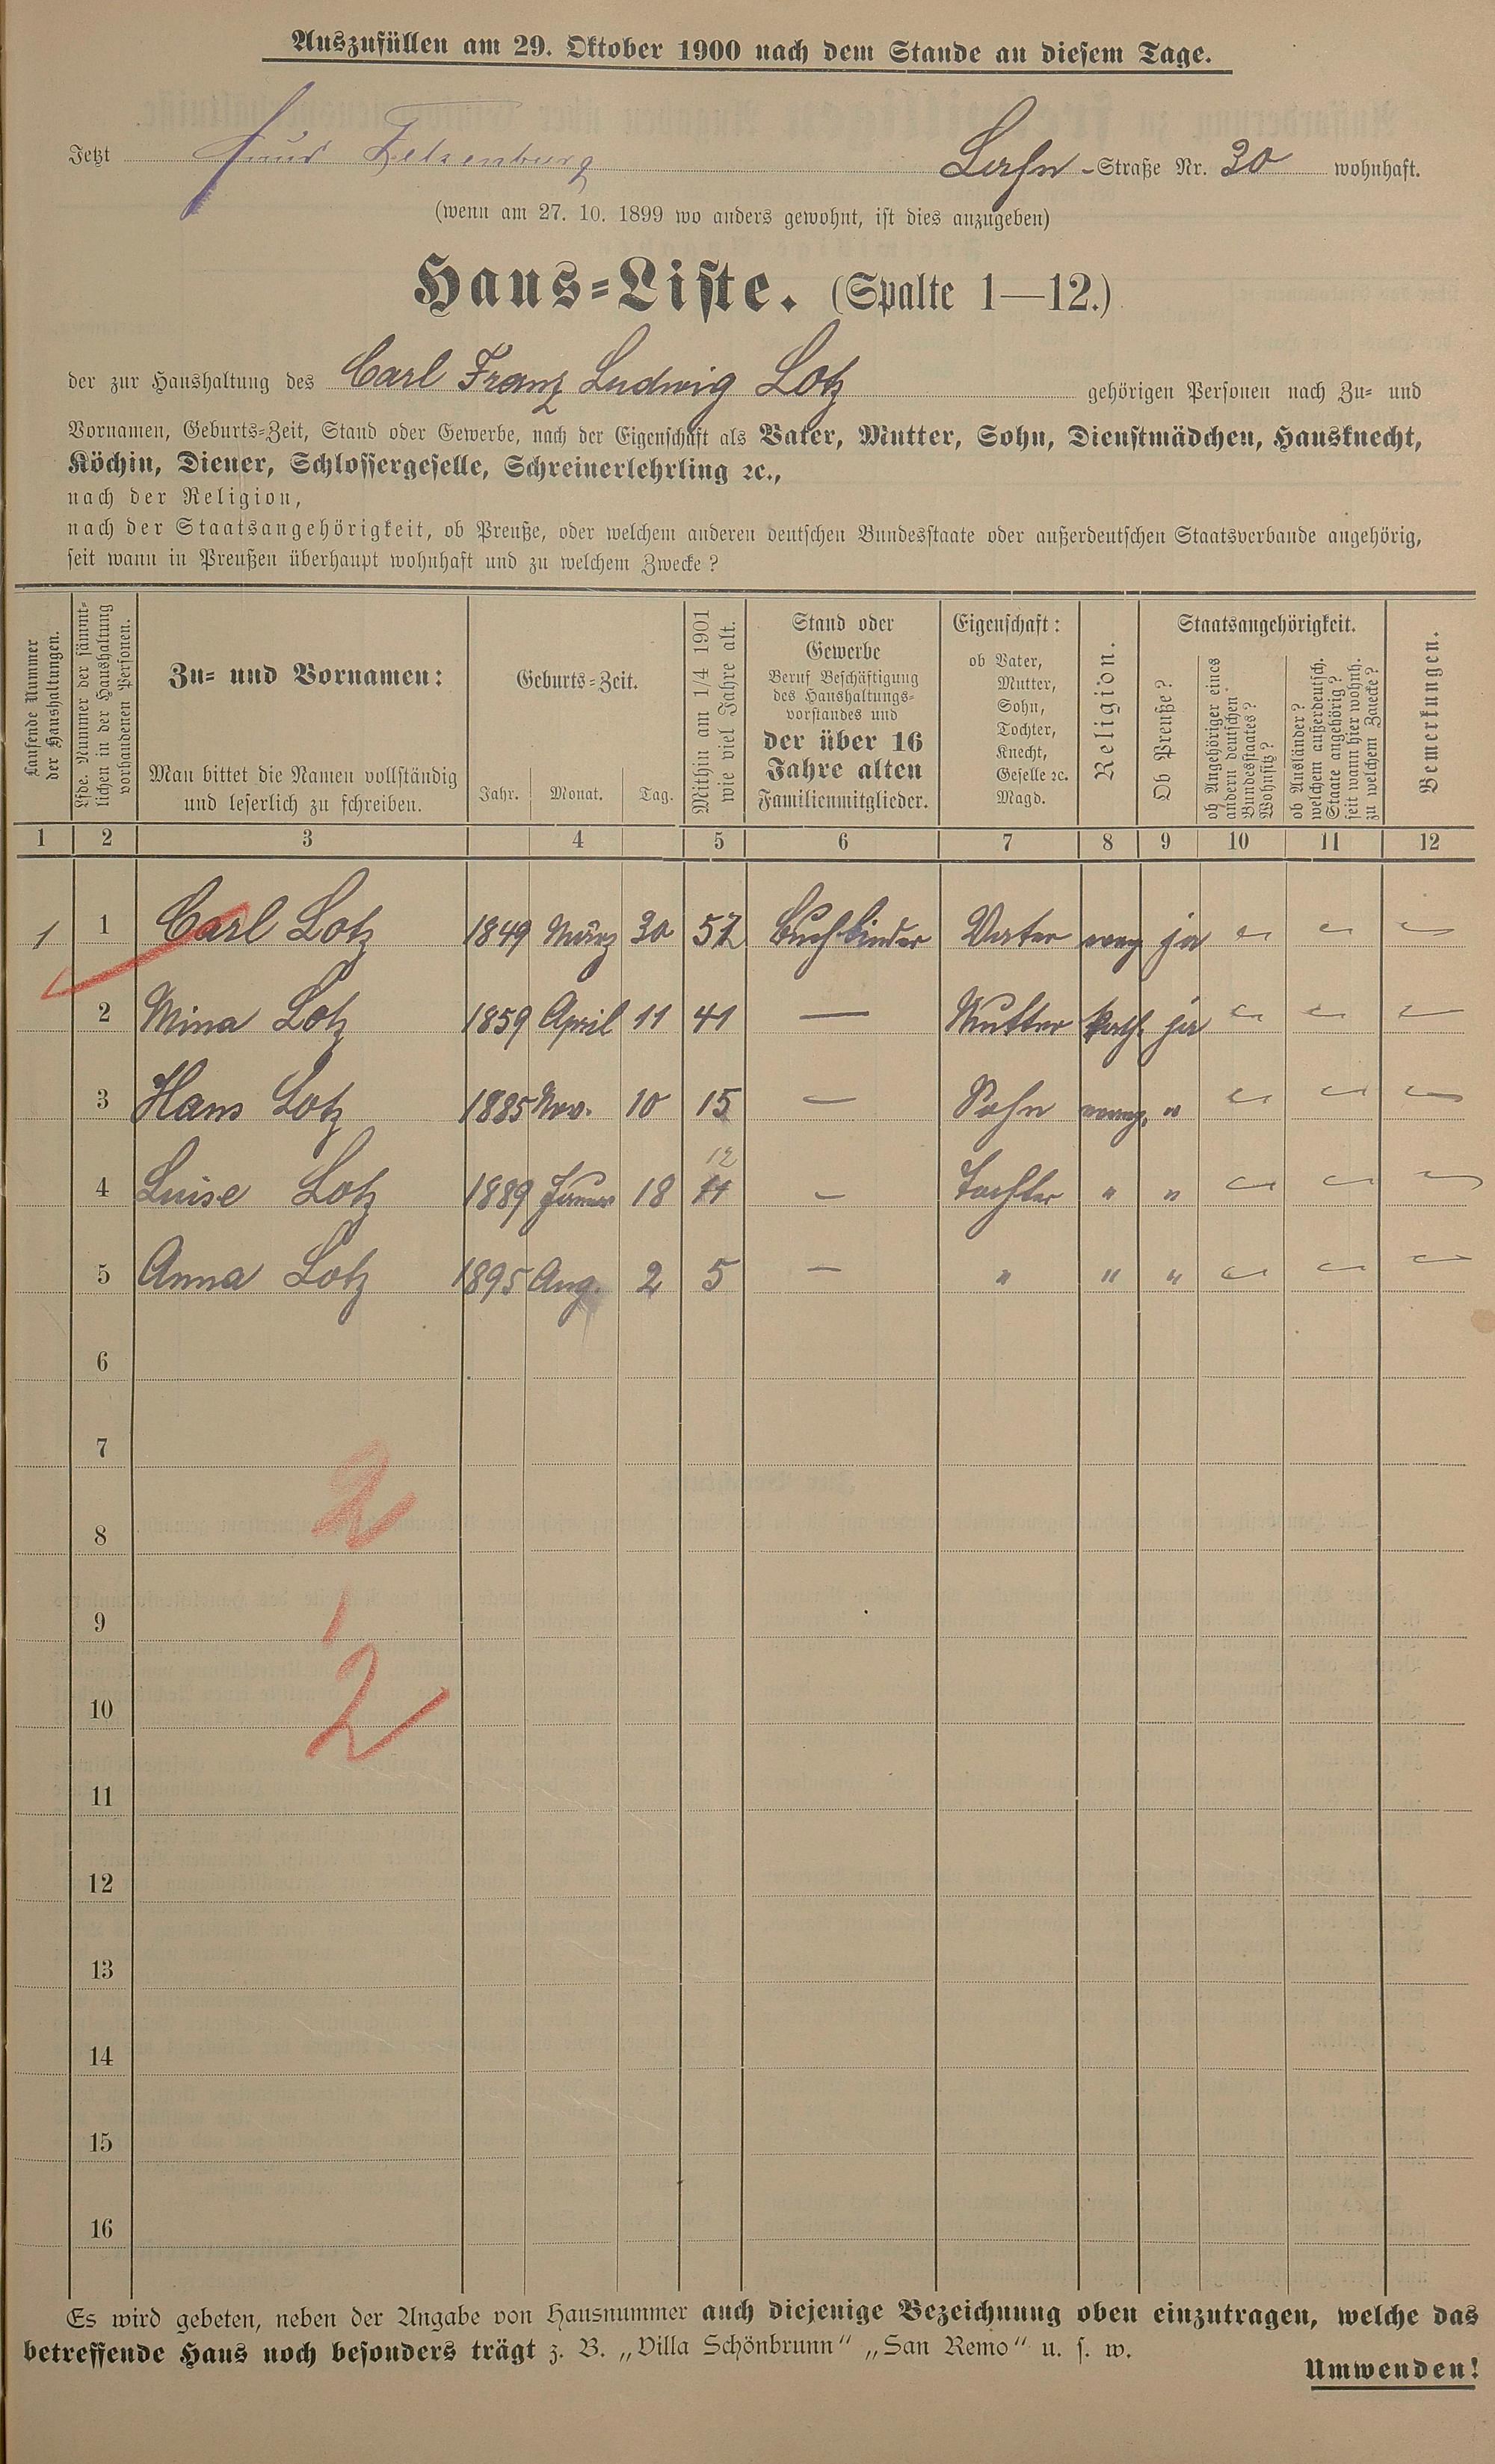 Auszufüllen am 29. Oktober 1900 nach dem Stande an diesem Tage.
Jetzt Haus Felsenburg Lahn-Straße Nr. 30 wohnhaft.
(wenn am 27. 10. 1899 wo anders gewohnt, ist dies anzugeben)
Haus-Liste. (Spalte 1—12.)
der zur Haushaltung des Carl Franz Ludwig Lotz gehörigen Personen nach Zu- und
Vornamen, Geburts-Zeit, Stand oder Gewerbe, nach der Eigenschaft als Vater, Mutter, Sohn, Dienstmädchen, Hausknecht,
Köchin, Diener, Schlossergeselle, Schreinerlehrling ꝛc.,
nach der Religion,
nach der Staatsangehörigkeit, ob Preuße, oder welchem anderen deutschen Bundesstaate oder außerdeutschen Staatsverbande angehörig,
seit wann in Preußen überhaupt wohnhaft und zu welchem Zwecke?
Laufende Nummer
der Haushaltungen.
Lfde. Nummer der sämmt-
lichen in der Haushaltung
vorhandenen Personen.
Zu- und Vornamen:
Man bittet die Namen vollständig
und leserlich zu schreiben.
Geburts-Zeit.
Jahr. Monat. Tag.
Mithin am 1/4 1901
wie viel Jahre alt.
Stand oder
Gewerbe
Beruf Beschäftigung
des Haushaltungs-
vorstandes und
der über 16
Jahre alten
Familienmitglieder.
Eigenschaft:
ob Vater,
Mutter,
Sohn,
Tochter,
Knecht,
Geselle ꝛc.
Magd.
Religion.
Staatsangehörigkeit.
Ob Preuße?
ob Angehöriger eines
andern deutschen
Bundesstaates?
Wohnsitz?
ob Ausländer?
welchem außerdeutsch.
Staate angehörig?
seit wann hier wohnh.
zu welchem Zwecke?
Bemerkungen.
1 2 3 4 5 6 7 8 9 10 11 12
1 1 Carl Lotz 1849 März 30 52 Buchbinder Vater evang ja
2 Mina Lotz 1859 April 11 41 — Mutter kath. ja
3 Hans Lotz 1885 Nov. 10 15 — Sohn evang. "
12
4 Luise Lotz 1889 Januar 18 11 — Tochter " "
5 Anna Lotz 1895 Aug. 2 5 — " " "
6
7
2
8
9
1
10
2
11
12
13
14
15
16
Es wird gebeten, neben der Angabe von Hausnummer auch diejenige Bezeichnung oben einzutragen, welche das
betreffende Haus noch besonders trägt z. B. „Villa Schönbrunn“ „San Remo“ u. s. w.
Umwenden!